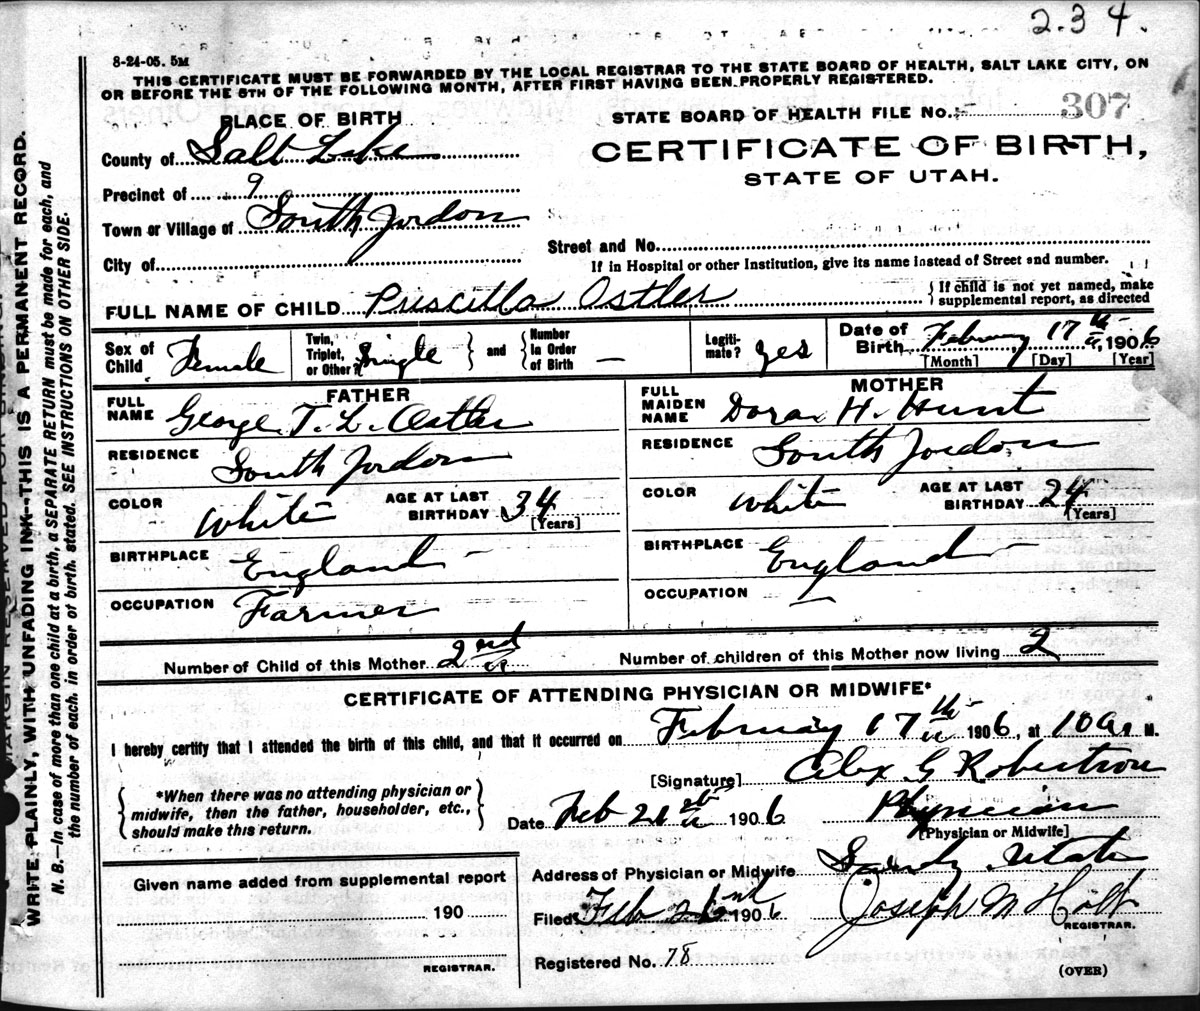 234.
8-24-05. 5M
THIS CERTIFICATE MUST BE FORWARDED BY THE LOCAL REGISTRAR TO THE STATE BOARD OF HEALTH, SALT LAKE CITY, ON
OR BEFORE THE 5TH OF THE FOLLOWING MONTH, AFTER FIRST HAVING BEEN PROPERLY REGISTERED.
PLACE OF BIRTH
STATE BOARD OF HEALTH FILE No. 307
County of Salt Lake
CERTIFICATE OF BIRTH,
STATE OF UTAH.
Precinct of 9
Town or Village of South Jordon
Street and No.
City of
If in Hospital or other Institution, give its name instead of Street and number.
FULL NAME OF CHILD Priscilla Ostler
{ If child is not yet named, make
supplemental report, as directed
Sex of Child Female
Twin, Triplet, or Other? Single } and { Number in Order of Birth —
Legitimate? yes
Date of Birth February 17th, 1906
[Month] [Day] [Year]
FATHER
FULL NAME George T. L. Ostler
RESIDENCE South Jordon
COLOR White
AGE AT LAST BIRTHDAY 34
[Years]
BIRTHPLACE England —
OCCUPATION Farmer
MOTHER
FULL MAIDEN NAME Dora H. Hunt
RESIDENCE South Jordon
COLOR White
AGE AT LAST BIRTHDAY 24
[Years]
BIRTHPLACE England —
OCCUPATION —
Number of Child of this Mother 2nd
Number of children of this Mother now living 2
CERTIFICATE OF ATTENDING PHYSICIAN OR MIDWIFE*
I hereby certify that I attended the birth of this child, and that it occurred on February 17th 1906, at 10 a. M.
[Signature] Alex G Robertson
{ *When there was no attending physician or
midwife, then the father, householder, etc.,
should make this return. }
Date Feb 21st 1906 Physician
[Physician or Midwife]
Address of Physician or Midwife Sandy Utah
Given name added from supplemental report
190
REGISTRAR.
Filed Feb 1906 Joseph M Holt
REGISTRAR.
Registered No. 78
(OVER)
WRITE PLAINLY, WITH UNFADING INK--THIS IS A PERMANENT RECORD.
N. B.—In case of more than one child at a birth, a SEPARATE RETURN must be made for each, and
the number of each, in order of birth, stated. SEE INSTRUCTIONS ON OTHER SIDE.